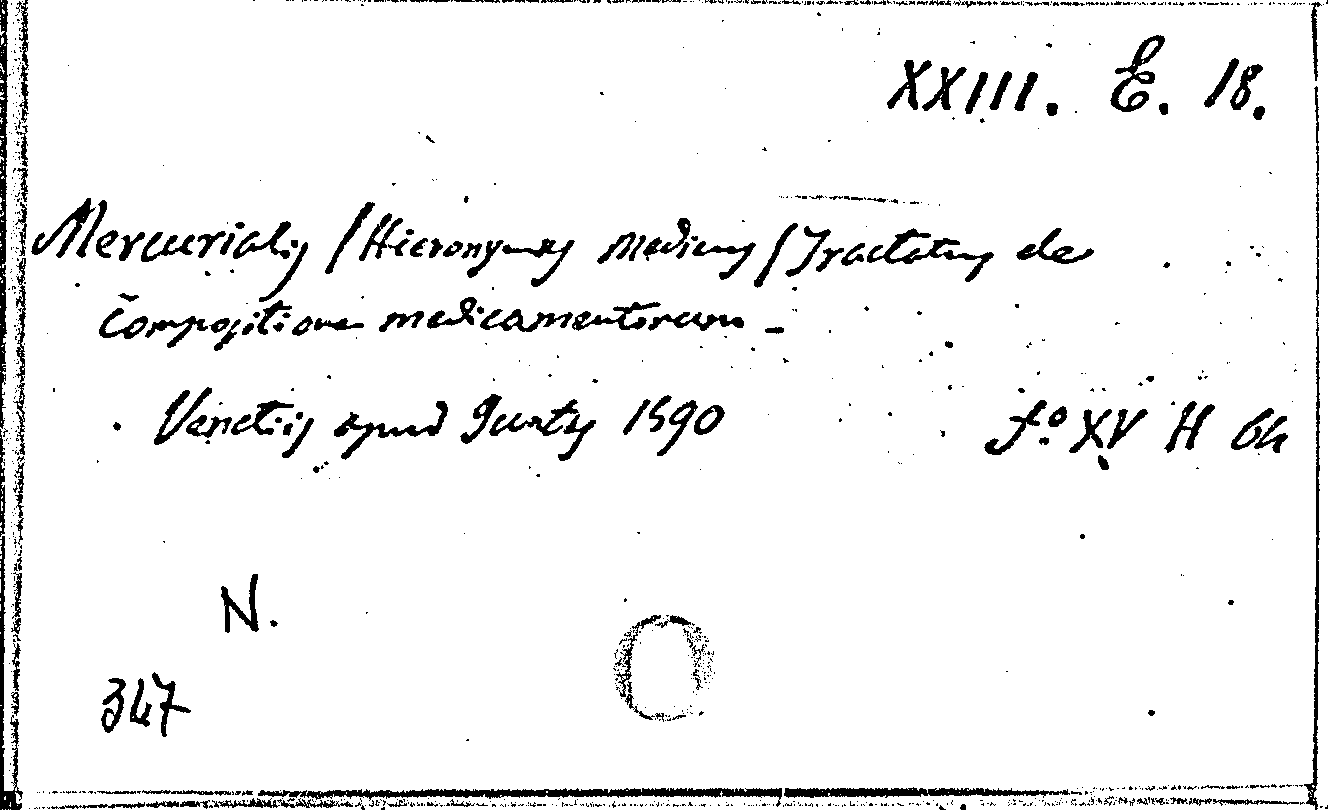 XXIII. E. 18.
Mercurialis / Hieronymus Medicus / Tractatus de
Compositione medicamentorum -
Venetiis apud Juntas 1590 f.º XV H 64
N.
347